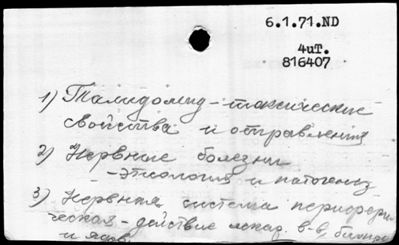 6.1.71.ND
4иТ.
816407
1) Талидомид - токсические
свойства и отравления
2) Нервные болезни
- этиология и патогенез
3) Нервная система перифери-
ческая - действие лекар. в-в,
и ядов